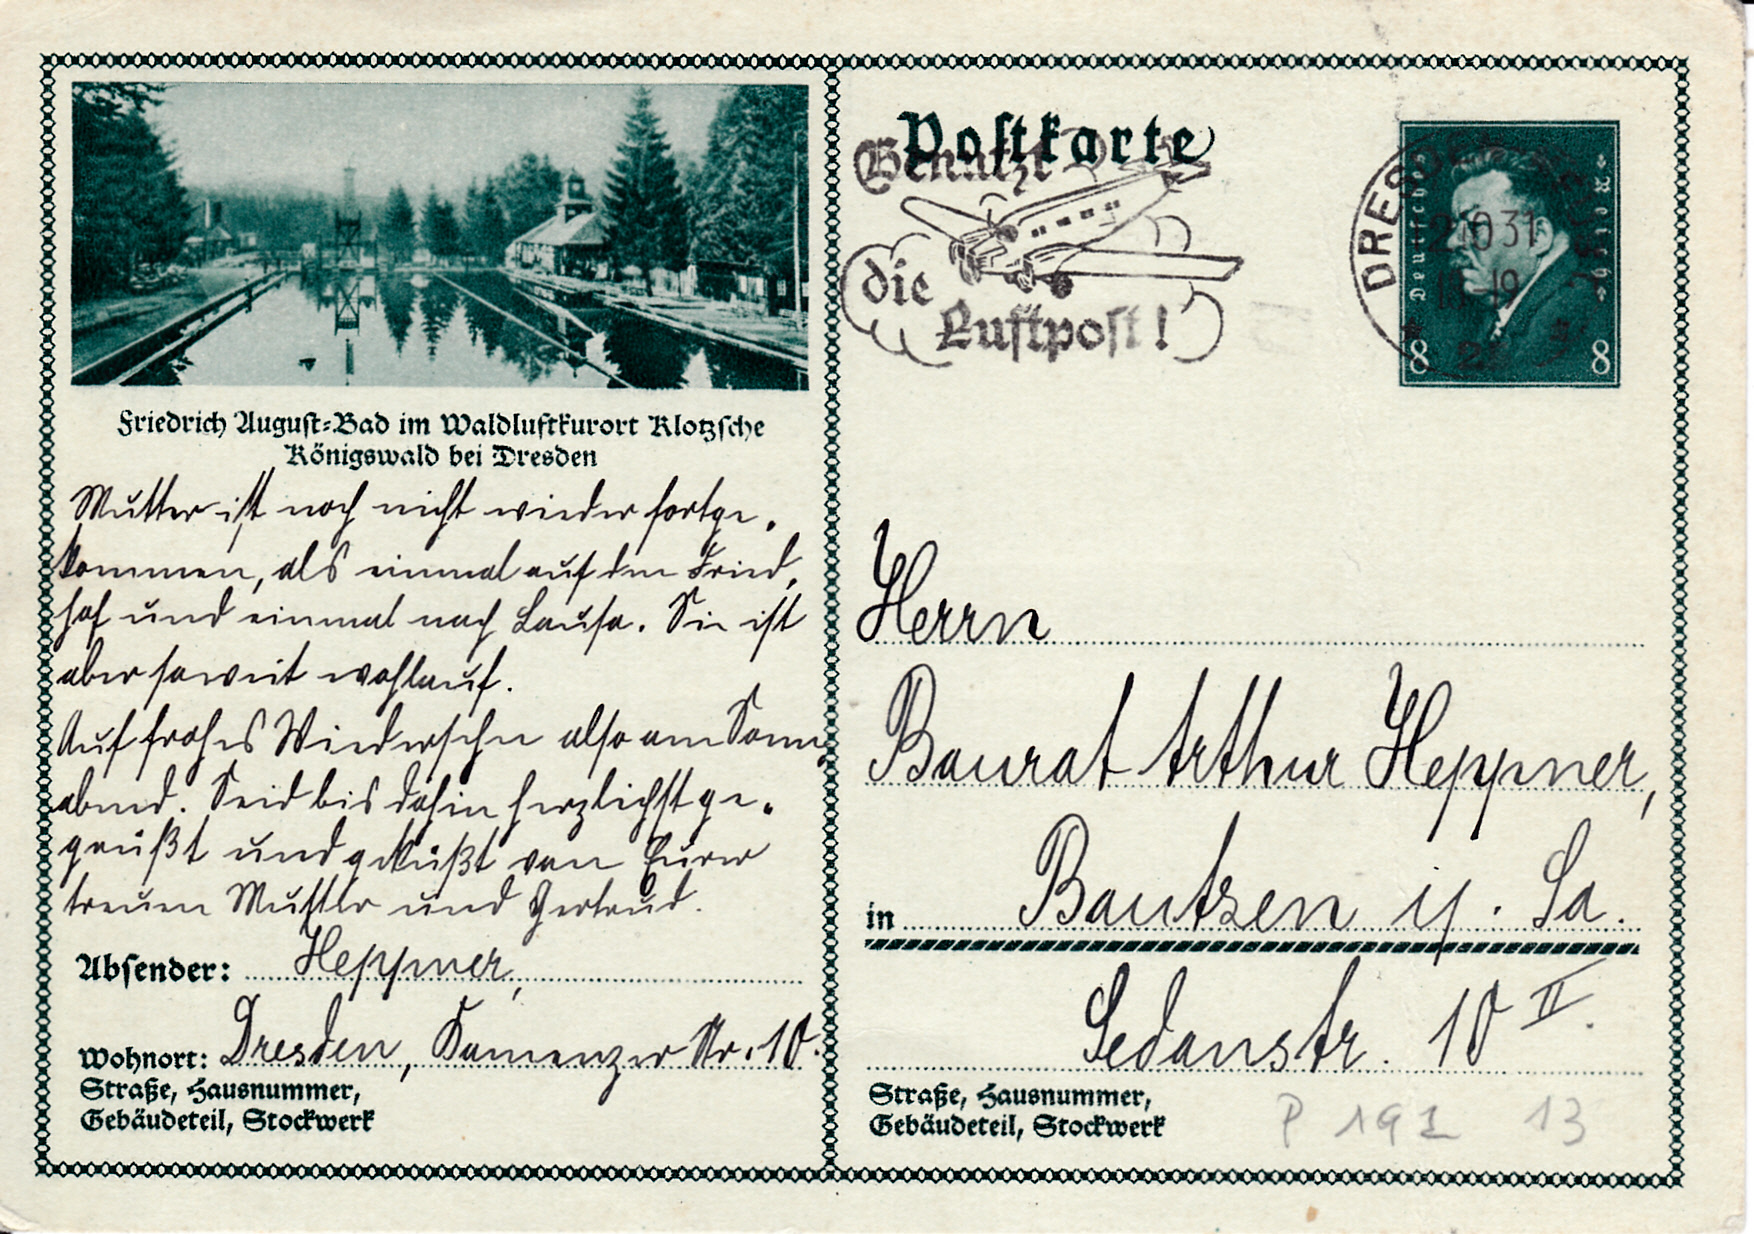 Friedrich August-Bad im Waldluftkurort Klotzsche
Königswald bei Dresden
Mutter ist noch nicht wieder fortge-
kommen, als einmal auf den Fried-
hof und einmal nach Lausa. Sie ist
aber soweit wohlauf.
Auf frohes Wiedersehn also am Sonn-
abend. Seid bis dahin herzlichst ge-
grüßt und geküßt von Eurer
treuen Mutter und Gertrud.
Absender: Heppner,
Wohnort: Dresden, Kamenzer Str. 10.
Straße, Hausnummer,
Gebäudeteil, Stockwerk
Postkarte
Benutzt
die
Luftpost!
DRESDEN
10 31
Deutsches
8 8
Herrn
Baurat Arthur Heppner,
in Bautzen i/ Sa.
Sedanstr. 10 II.
Straße, Hausnummer,
Gebäudeteil, Stockwerk
P 191 13